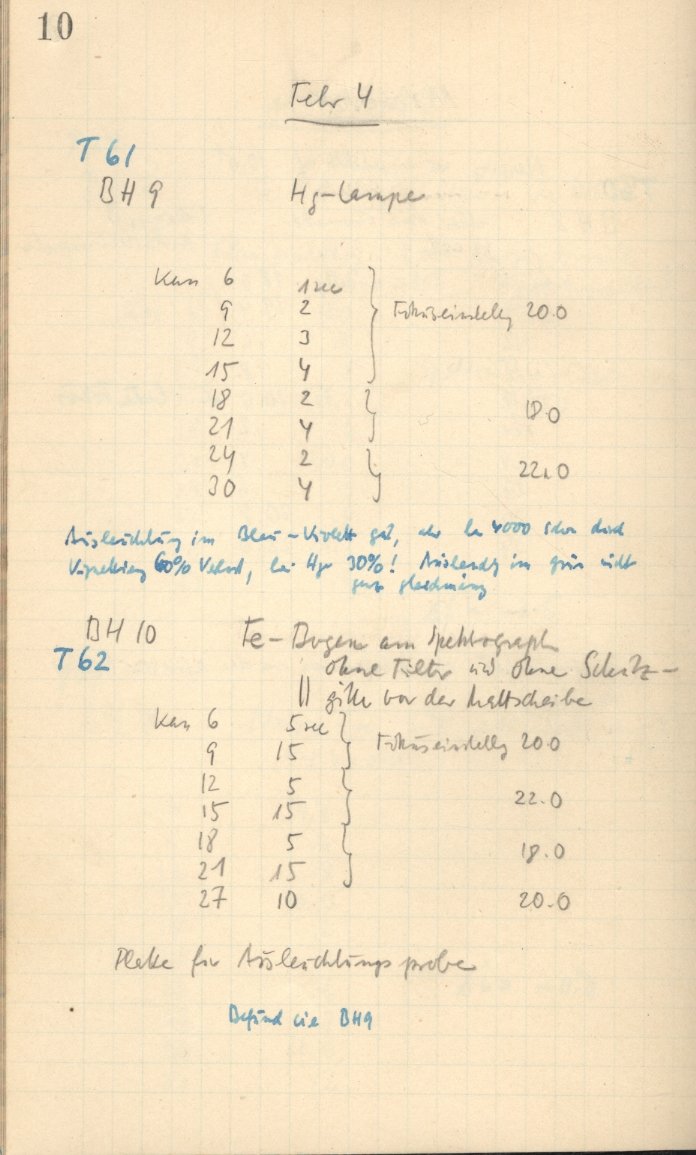 10
Febr 4
T 61
BH 9 Hg-Lampe
Kass 6 1 sec } Fokuseinstellg 20.0
9 2
12 3
15 4
18 2 } 18.0
21 4
24 2 } 22.0
30 4
Ausleuchtung im Blau-Violett gut, aber bei 4000 schon durch
Vignettierg 60% Verlust, bei Hγ 30%! Ausleuchtg im grün nicht
ganz gleichmässig
BH 10 Fe-Bogen am Spektrograph
T 62
ohne Filter und ohne Schutz-
|| gitter vor der Mattscheibe
Kass 6 5 sec } Fokuseinstellg 20.0
9 15
12 5 } 22.0
15 15
18 5 } 18.0
21 15
27 10 20.0
Platte für Ausleuchtungsprobe
Befund wie BH9